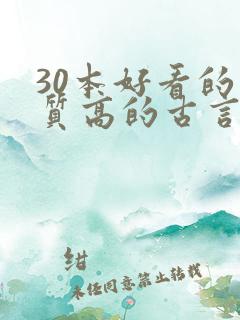 30本好看的
质高的古言
绀
未经同意禁止转载